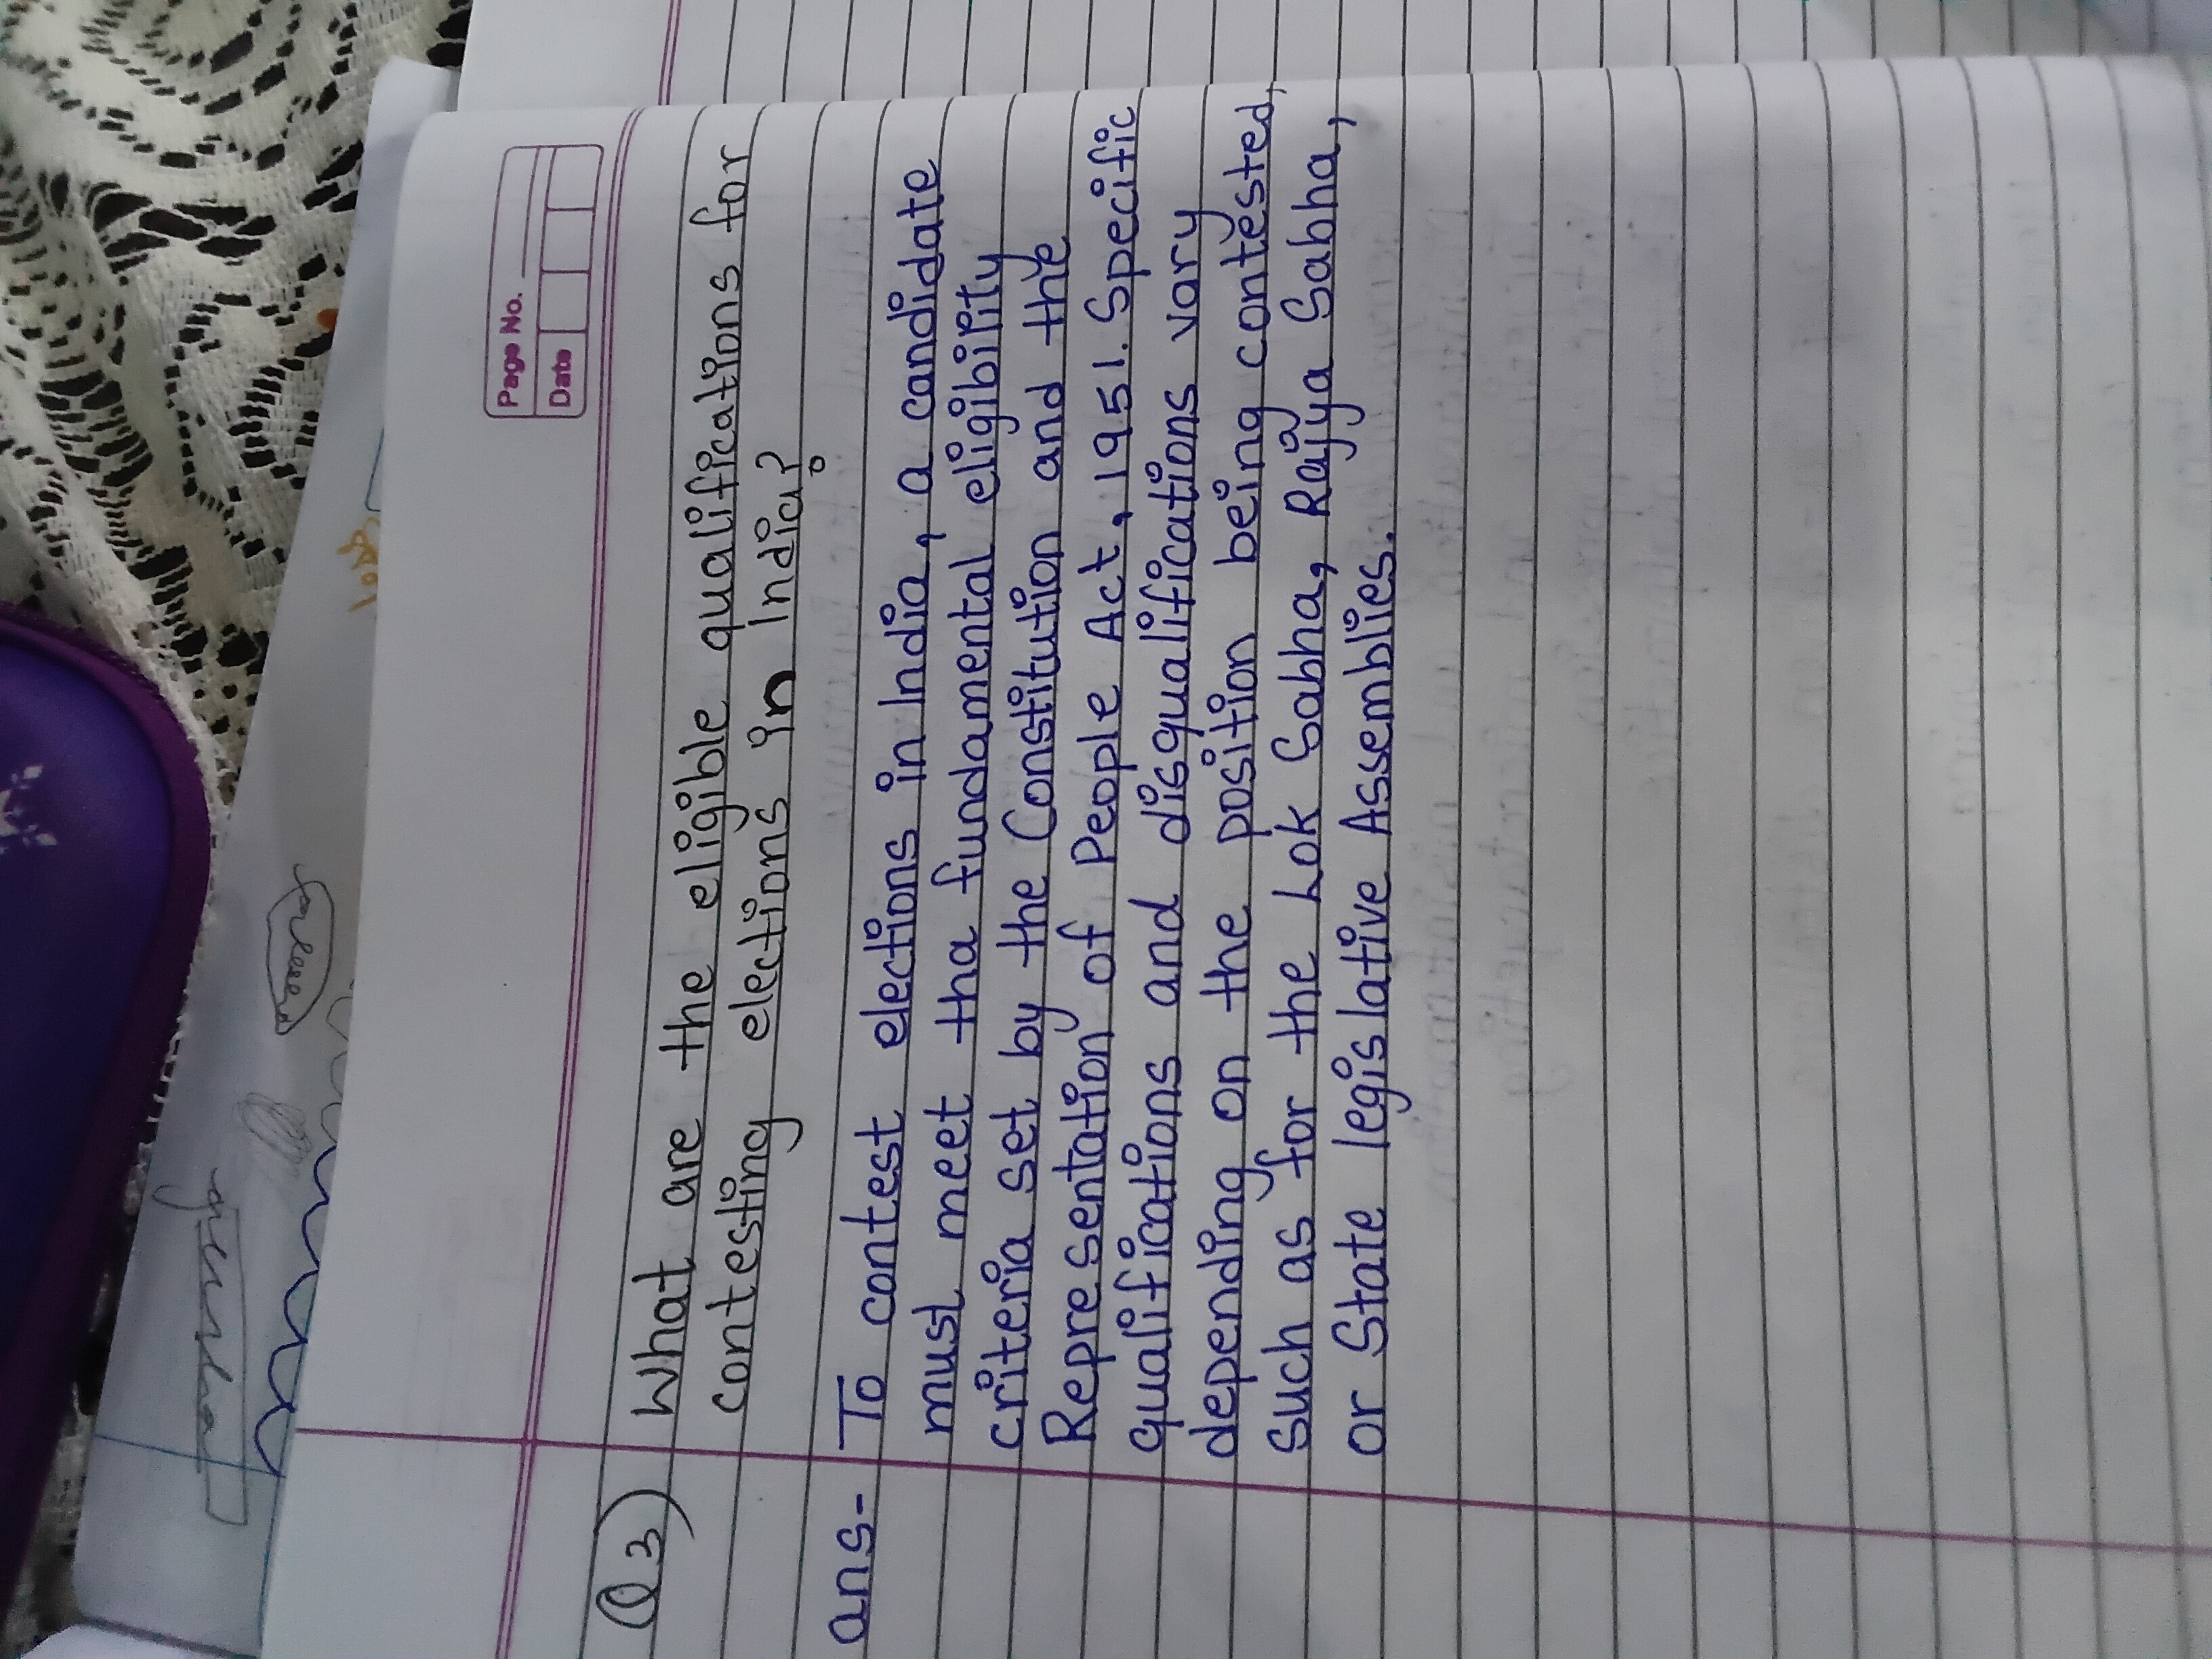 Page No.
Date
Q3) What are the eligible qualifications for
contesting elections in India?
ans- To contest elections in India, a candidate
must meet tha fundamental eligibility
criteria set by the Constitution and the
Representation of People Act, 1951. Specific
qualifications and disqualifications vary
depending on the position being contested,
such as for the Lok Sabha, Rajya Sabha,
or State legislative Assemblies.